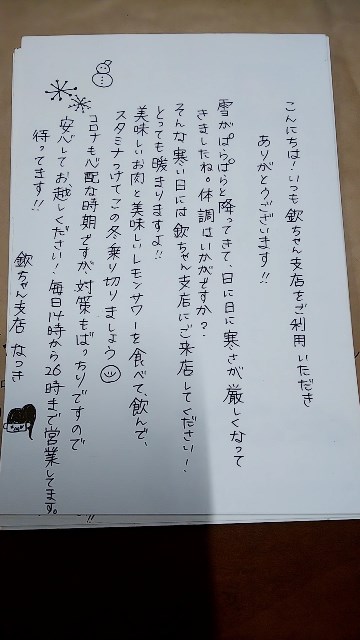 こんにちは！いつも欽ちゃん支店をご利用いただき
ありがとうございます!!
雪がぱらぱらと降ってきて、日に日に寒さが厳しくなって
きましたね。体調はいかがですか？
そんな寒い日には欽ちゃん支店にご来店してください！
とっても暖まりますよ!!
美味しいお肉と美味しいレモンサワーを食べて、飲んで、
スタミナつけてこの冬乗り切りましょう
コロナも心配な時期ですが、対策もばっちりですので
安心してお越しください！毎日14時から26時まで営業してます。
待ってます!!
欽ちゃん支店 なつき